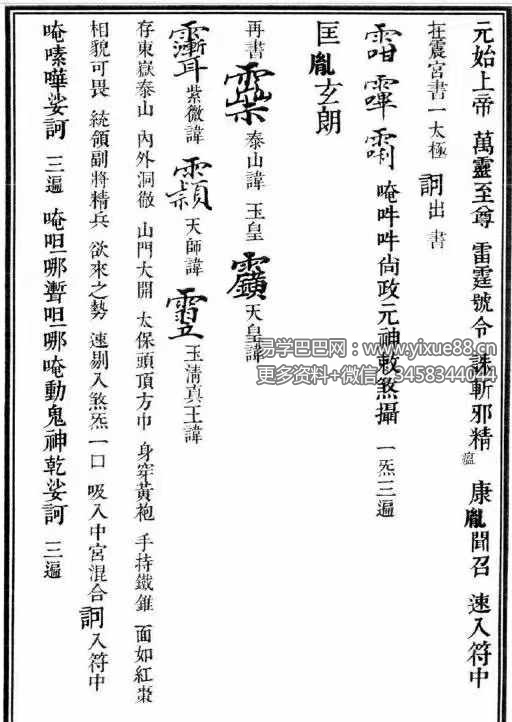 元始上帝 萬靈至尊 雷霆號令 誅斬邪精 瘟 康胤聞召 速入符中
在震宮書一太極 訶出 書
唵吽吽尙政元神敕煞攝 一炁三遍
匡胤玄朗
再書 泰山諱 玉皇 天皇諱
紫微諱 天師諱 玉淸真王諱
存東嶽泰山 內外洞徹 山門大開 太保頭頂方巾 身穿黃袍 手持鐵錐 面如紅棗
相貌可畏 統領副將精兵 欲來之勢 速剔入煞炁一口 吸入中宮混合 訶入符中
唵嗉嘩娑訶 三遍 唵呾哪澵呾哪唵動鬼神乾娑訶 三遍
易学巴巴网：www.yixue88.cn
更多资料+微信：3458344044